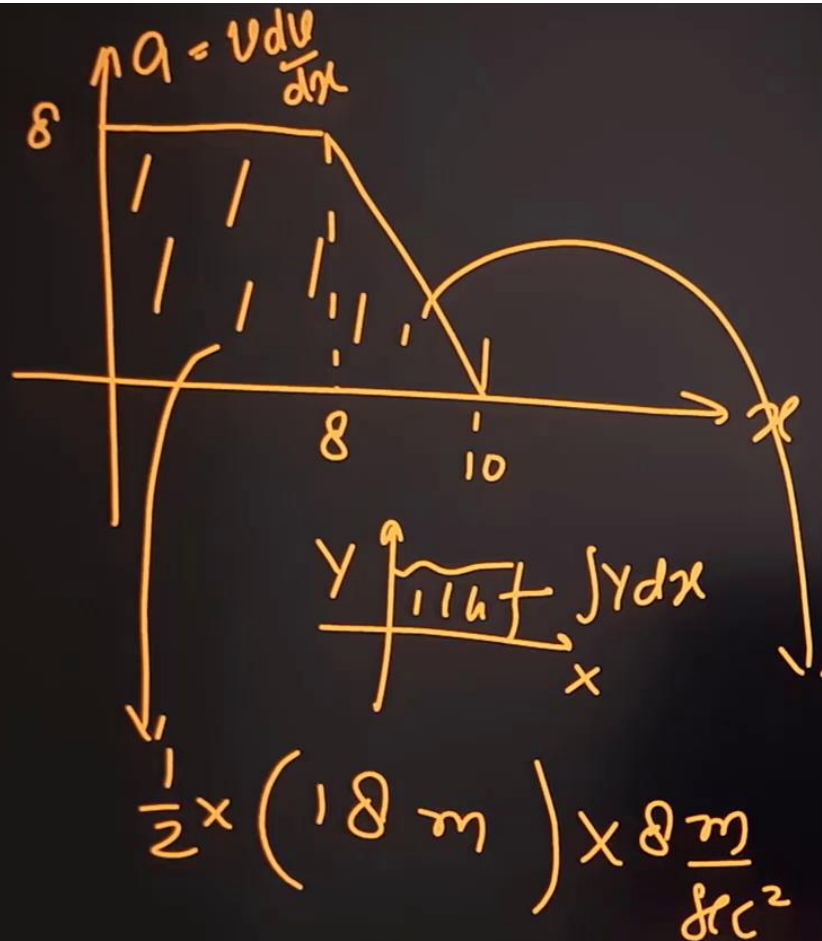 a = v dv/dx
8
x
8
10
Y
∫Y dx
X
1/2 × (18 m) × 8 m/sec²